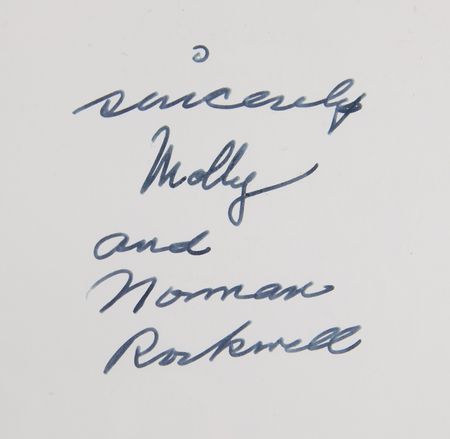 sincerely
Molly
and
Norman
Rockwell